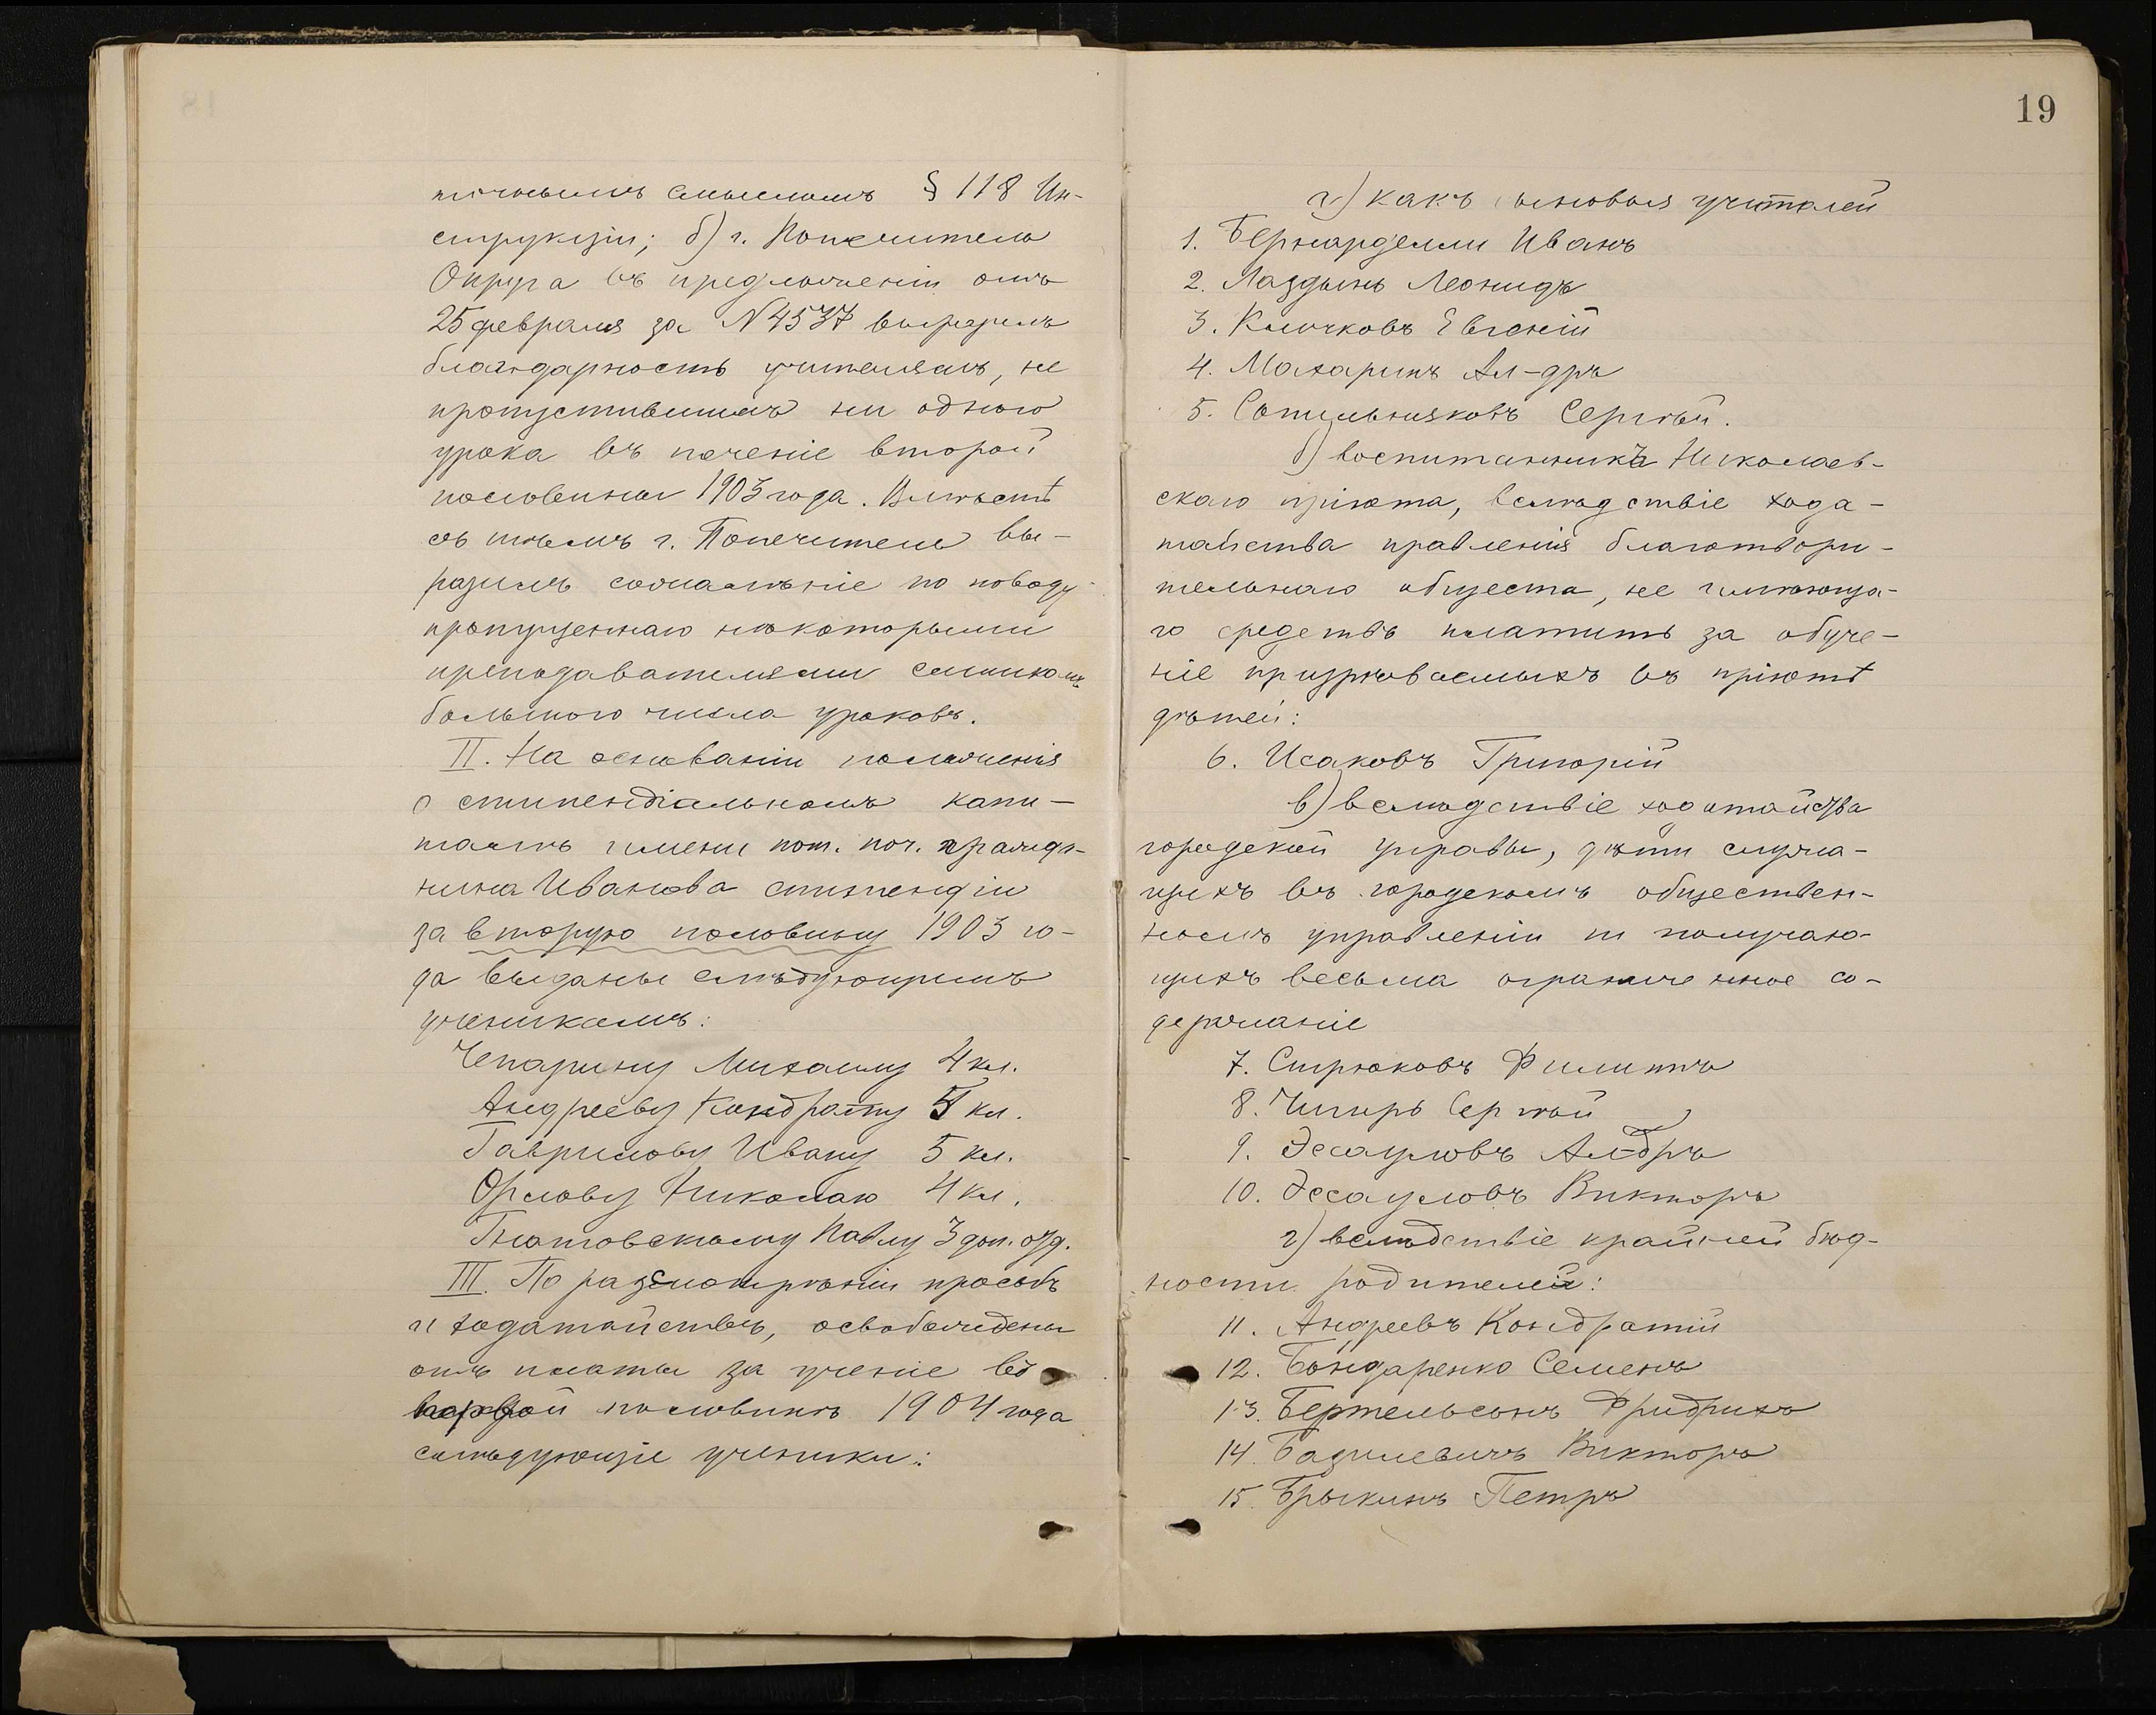 точнымъ смысломъ § 118 Ин-
струкціи; б) г. Попечитель
Округа въ предложеніи отъ
25 февраля за N 4537 выразилъ
благодарность учителямъ, не
пропустившимъ ни одного
урока въ теченіе второй
половины 1903 года. Вмѣстѣ
съ тѣмъ г. Попечитель вы-
разилъ сожалѣніе по поводу
пропущеннаго нѣкоторыми
преподавателями слишкомъ
большого числа уроковъ.
II. На основаніи положенія
о стипендіальномъ капи-
талѣ имени пот. поч. гражда-
нина Иванова стипендіи
за вторую половину 1903 го-
да выданы слѣдующимъ
ученикамъ:
Чепарину Михаилу 4 кл.
Андрееву Кондратію 5 кл.
Гаврилову Ивану 5 кл.
Орлову Николаю 4 кл.
Гнатовскому Павлу 3 доп. отд.
III. По разсмотрѣніи просьбъ
и ходатайствъ, освобождены
отъ платы за ученіе въ
первой половинѣ 1904 года
слѣдующіе ученики:
19
а) какъ сыновья учителей
1. Бернарделли Иванъ
2. Лаздынь Леонидъ
3. Клочковъ Евгеній
4. Махаринъ Ал-дръ
5. Сопильняковъ Сергѣй.
б) воспитанника Николаев-
скаго пріюта, вслѣдствіе хода-
тайства правленія благотвори-
тельнаго общества, не имѣюща-
го средствъ платить за обуче-
ніе призрѣваемыхъ въ пріютѣ
дѣтей:
6. Исаковъ Григорій
в) вслѣдствіе ходатайства
городской управы, дѣти служа-
щихъ въ городскомъ обществен-
номъ управленіи и получаю-
щихъ весьма ограниченное со-
держаніе
7. Стрюковъ Филиппъ
8. Чигирь Сергѣй
9. Эсауловъ Ал-дръ
10. Эссауловъ Викторъ
г) вслѣдствіе крайней бѣд-
ности родителей:
11. Андреевъ Кондратій
12. Бондаренко Семенъ
13. Бертельсонъ Фридрихъ
14. Базилевичъ Викторъ
15. Брыкинъ Петръ